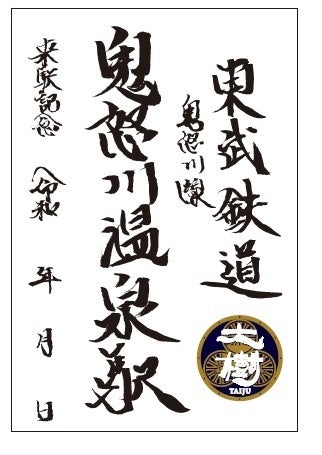 東武鉄道
鬼怒川線
鬼怒川温泉駅
来駅記念 令和 年 月 日
大樹
TAIJU